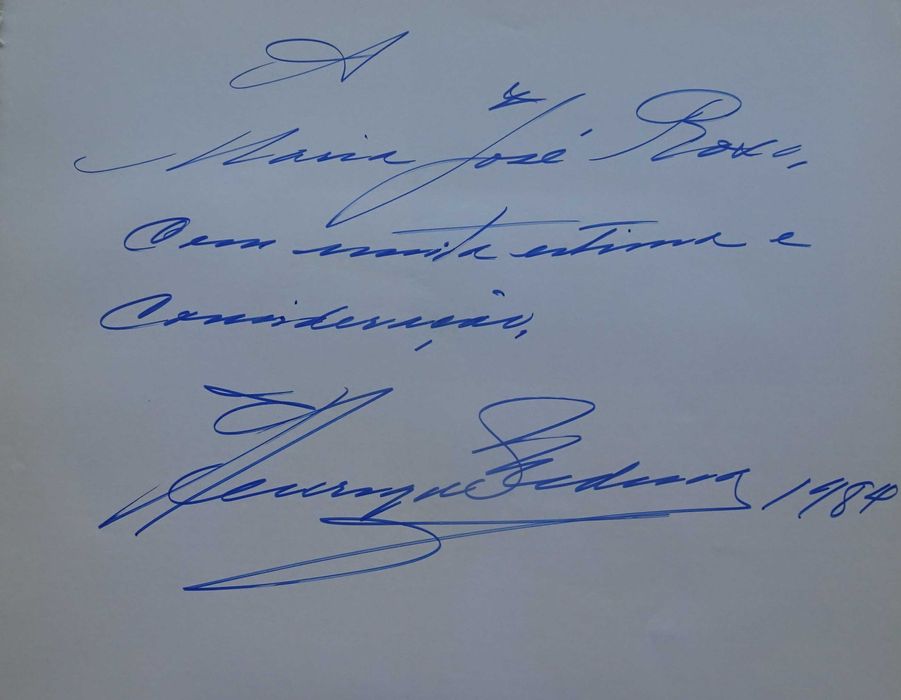 A
Maria José Roxo,
Com muita estima e
Consideração,
Henrique 1984